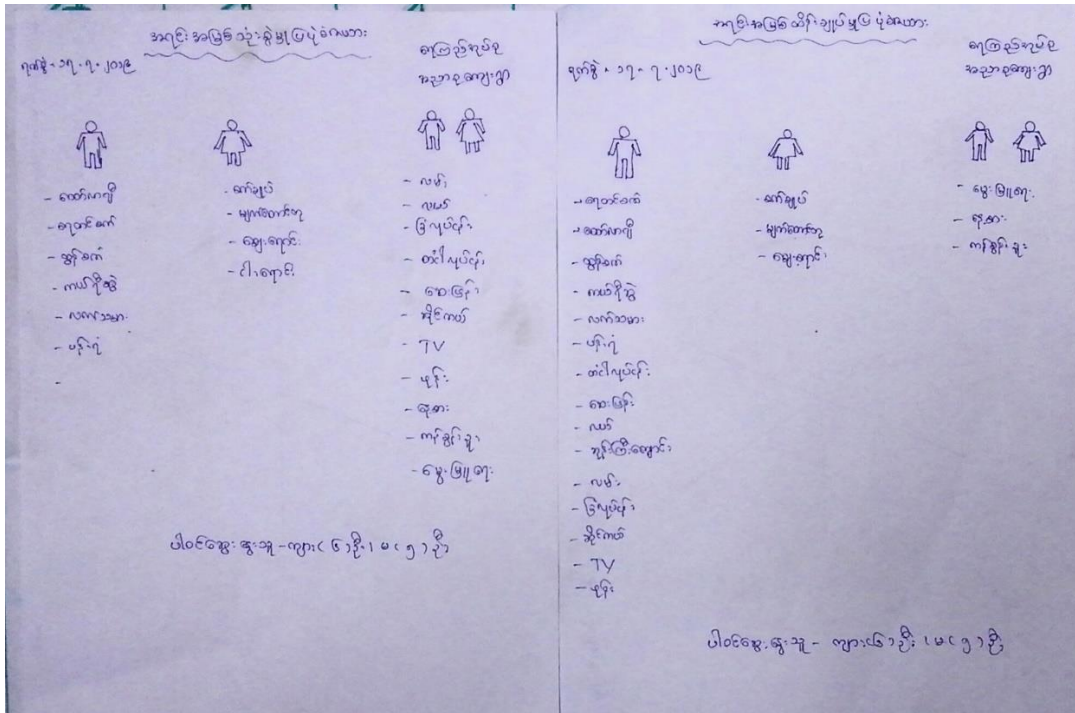 အရင်းအမြစ်သုံးစွဲမှုပြပုံစံဇယား
ရက်စွဲ - ၁၇.၇.၂၀၁၉
ရေကြည်အုပ်စု
အညာစုကျေးရွာ
- ထော်လာဂျီ
- ရေတင်စက်
- ထွန်စက်
- ကယ်ရီဆွဲ
- လက်သမား
- ပန်းရံ
-
- စက်ချုပ်
- မျက်တောင်တု
- ဈေးရောင်း
- ငါးရောင်း
- လမ်း
- လယ်
- ခြံလုပ်ငန်း
- တံငါလုပ်ငန်း
- ဆေးဖြန်း
- ဆိုင်ကယ်
- TV
- ဖုန်း
- နေ့စား
- ကန်စွန်းခူး
- မွေးမြူရေး
ပါဝင်ဆွေးနွေးသူ - ကျား (၆) ဦး၊ မ (၅) ဦး
အရင်းအမြစ်ထိန်းချုပ်မှုပြပုံစံဇယား
ရက်စွဲ - ၁၇.၇.၂၀၁၉
ရေကြည်အုပ်စု
အညာစုကျေးရွာ
- ရေတင်စက်
- ထော်လာဂျီ
- ထွန်စက်
- ကယ်ရီဆွဲ
- လက်သမား
- ပန်းရံ
- တံငါလုပ်ငန်း
- ဆေးဖြန်း
- လယ်
- ဘုန်းကြီးကျောင်း
- လမ်း
- ခြံလုပ်ငန်း
- ဆိုင်ကယ်
- TV
- ဖုန်း
- စက်ချုပ်
- မျက်တောင်တု
- ဈေးရောင်း
- မွေးမြူရေး
- နေ့စား
- ကန်စွန်းခူး
ပါဝင်ဆွေးနွေးသူ - ကျား (၆) ဦး၊ မ (၅) ဦး